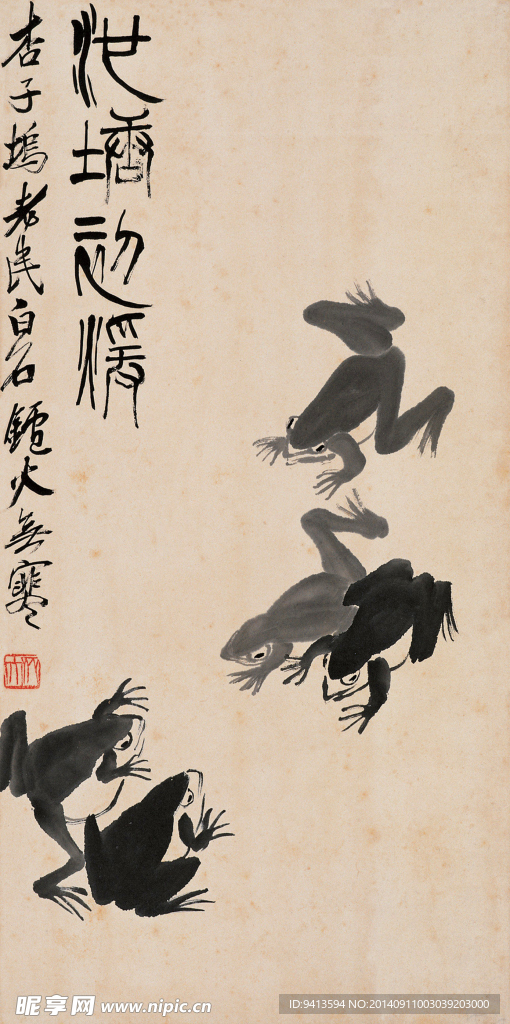 池塘初煖
杏子塢老民白石鑪火無寒
昵享网 www.nipic.cn
ID:9413594 NO:20140911003039203000